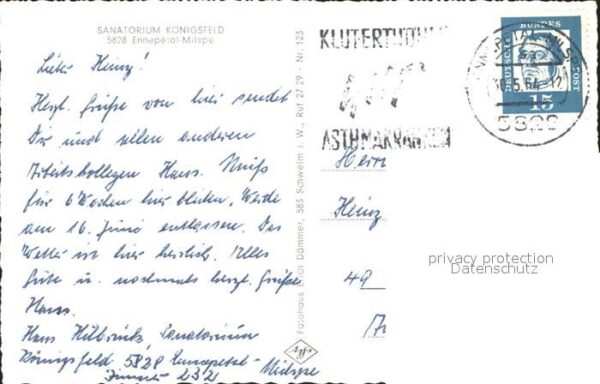 SANATORIUM KÖNIGSFELD
5828 Ennepetal-Milspe
Lieber Heinz!
Herzl. Grüße von hier sendet
Dir und allen anderen
Arbeitskollegen Hans. Muß
für 6 Wochen hier bleiben, Werde
am 16. Juni entlassen. Das
Wetter ist hier herrlich. Alles
Gute u. nochmals herzl. Grüße
Hans.
Hans Hilbrink, Sanatorium
Königsfeld 5828 Ennepetal-Milspe
Zimmer 232
Fotohaus Erich Dämmer, 583 Schwelm i. W., Ruf 27 29 · Nr. 123
KLUTERTHÖHLE
ASTHMAKRANKEN
DEUTSCHE BUNDESPOST
15
5.64
5828
Herrn
Heinz
49
privacy protection
Datenschutz